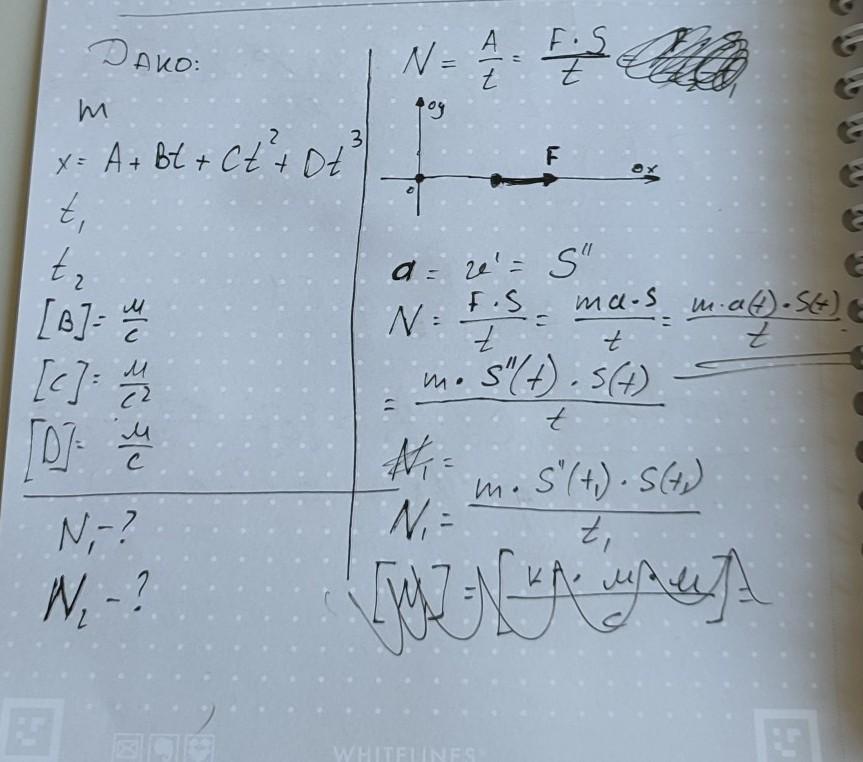 Дано:
m
x = A + Bt + Ct² + Dt³
t₁
t₂
[B] = м/с
[C] = м/с²
[D] = м/с
N₁ - ?
N₂ - ?
N = A/t = F·S/t
oy
F
ox
o
a = v' = S''
N = F·S/t = ma·S/t = m·a(t)·S(t)/t
= m·S''(t)·S(t)/t
N₁ =
N₁ = m·S''(t₁)·S(t₁)/t₁
WHITELINES®